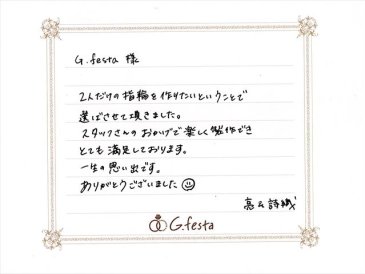 G.festa 様
2人だけの指輪を作りたいということで
選ばせて頂きました。
スタッフさんのおかげで楽しく製作でき
とても満足しております。
一生の思い出です。
ありがとうございました
亮&詩織
G.festa